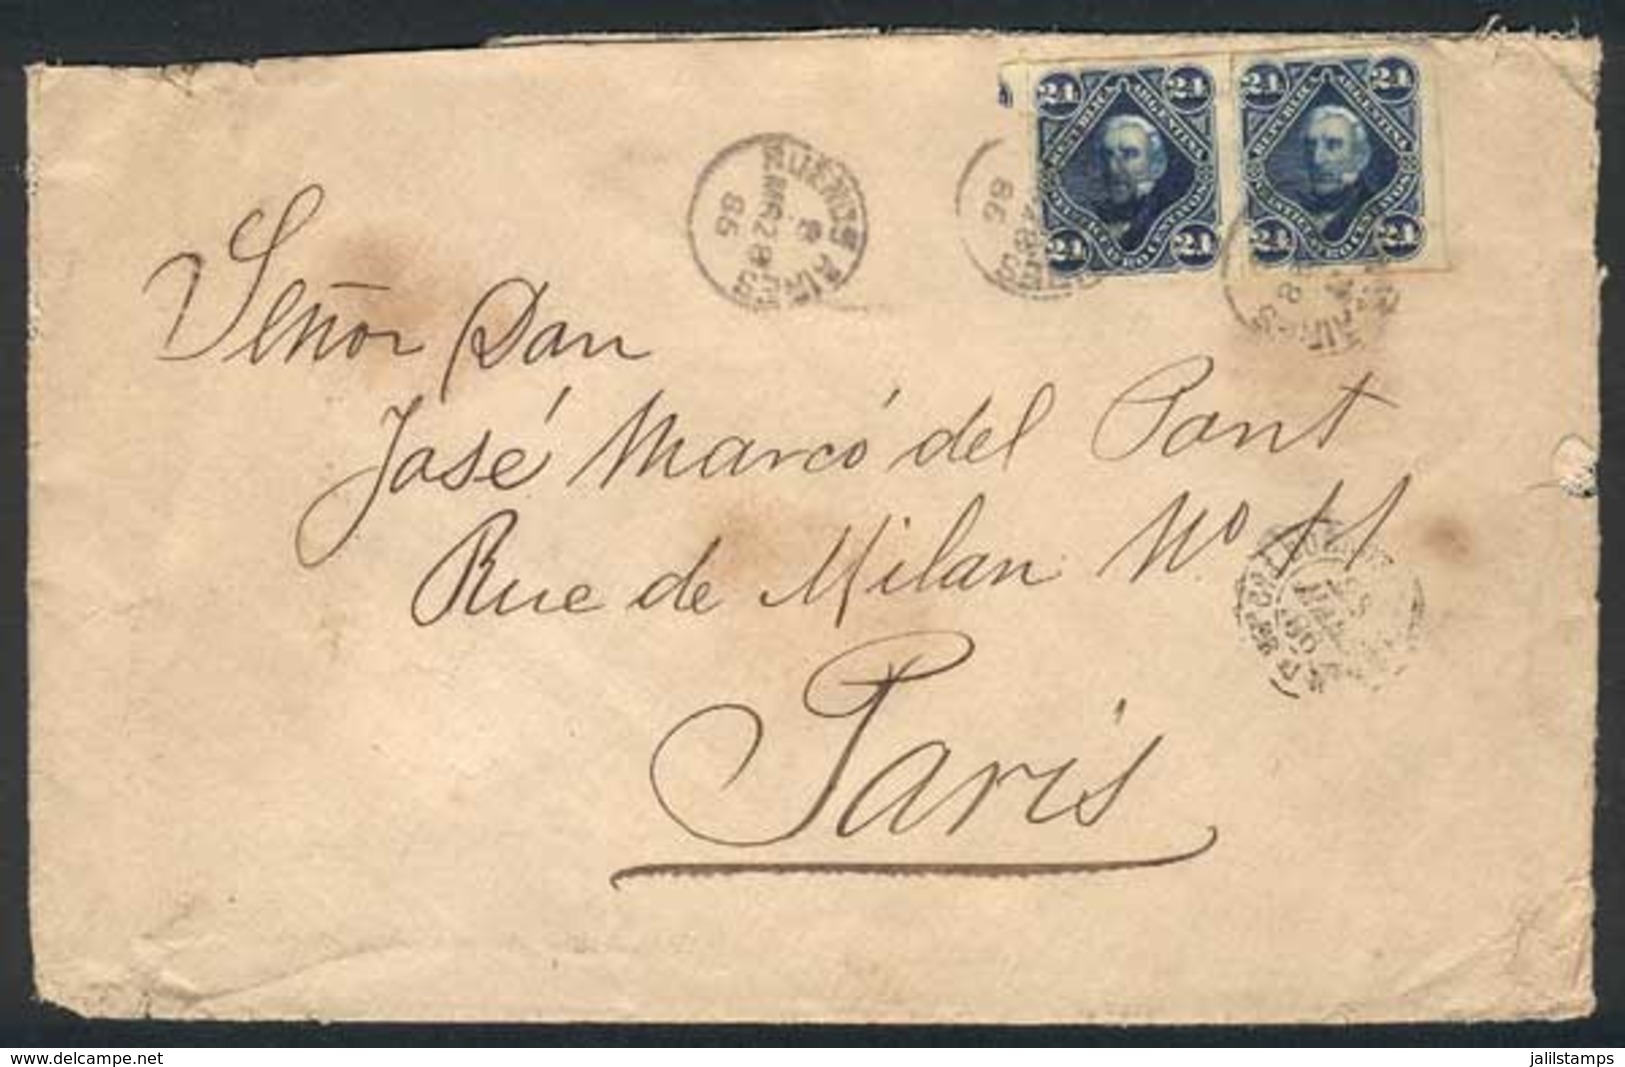 24 24 24 24
REPUBLICA ARGENTINA REPUBLICA ARGENTINA
VEINTICUATRO CENTAVOS VEINTICUATRO CENTAVOS
24 24 24 24
BUENOS AIRES
MR28
86
86
Señor Don
José Marcó del Pont
Rue de Milan Nº 11
Paris
www.delcampe.net
jalilstamps